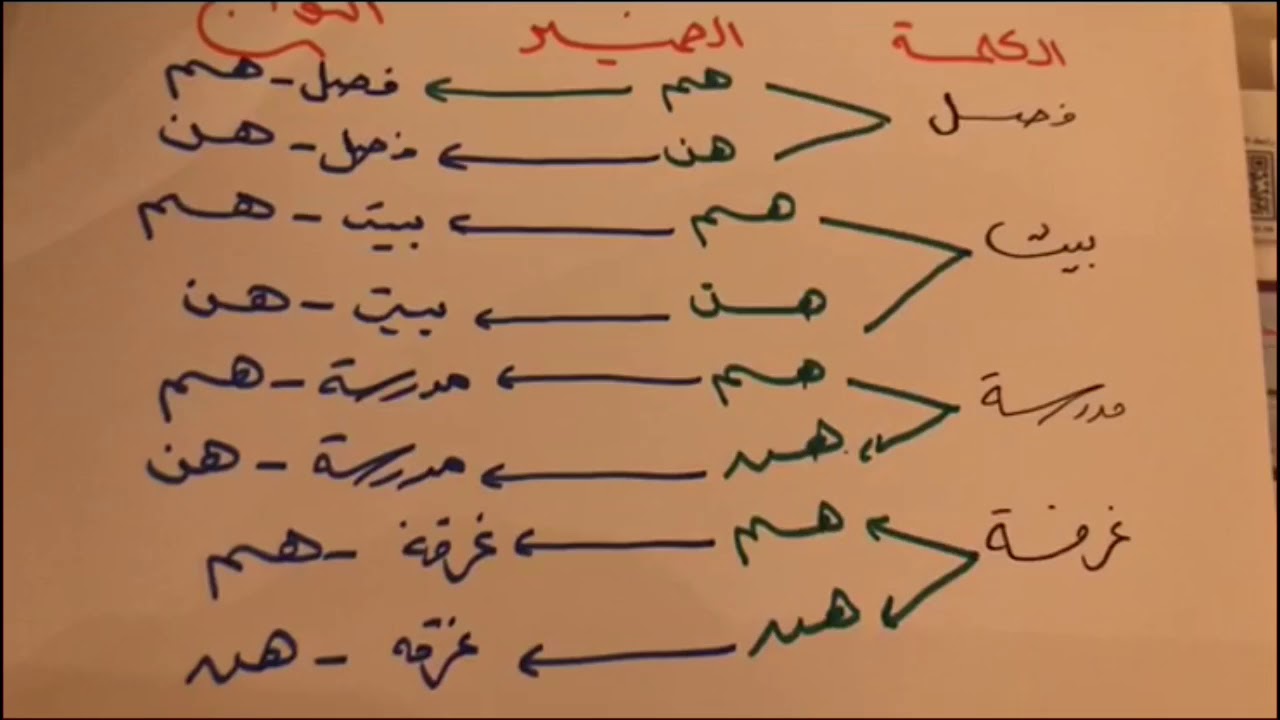 الكلمة الضمير
فصل هم فصل - هم
هن فصل - هن
بيت هم بيت - هم
هن بيت - هن
مدرسة هم مدرسة - هم
هن مدرسة - هن
غرفة هم غرفة - هم
هن غرفة - هن